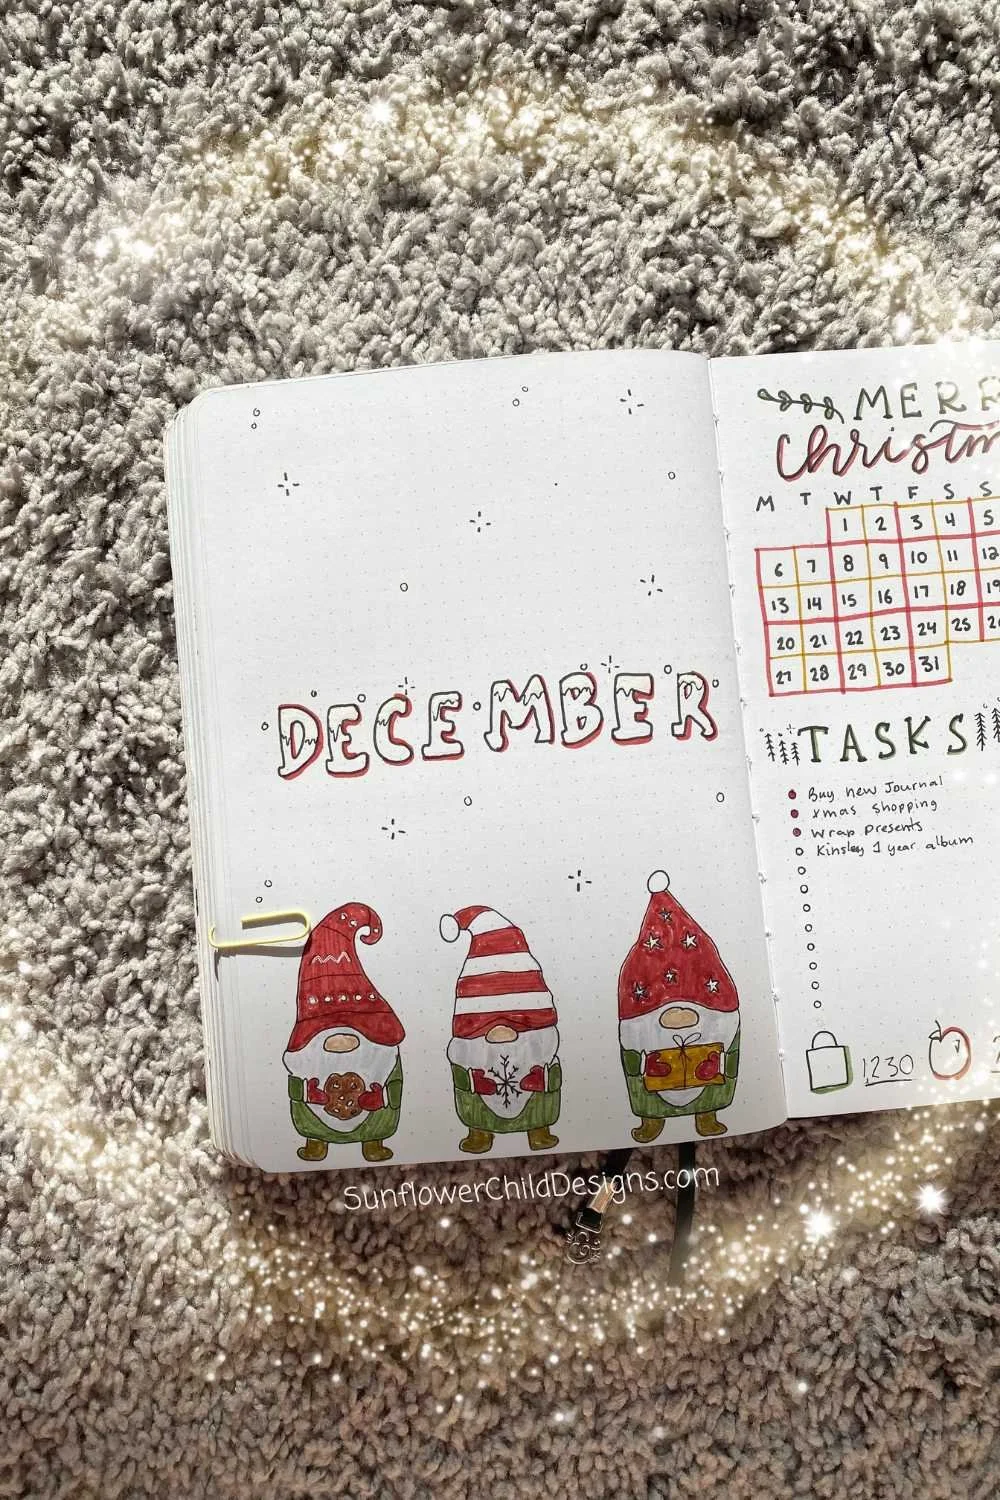 DECEMBER
MERR
Christm
M T W T F S S
1 2 3 4 5
6 7 8 9 10 11 12
13 14 15 16 17 18 19
20 21 22 23 24 25
27 28 29 30 31
TASKS
Buy new Journal
xmas shopping
Wrap presents
Kinsley 1 year album
1230
SunflowerChildDesigns.com